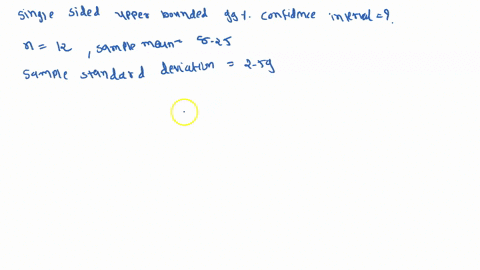 single sided upper bounded 99%. confidence interval = ?.
n = 12, sample mean = 8.25
sample standard deviation = 2.59